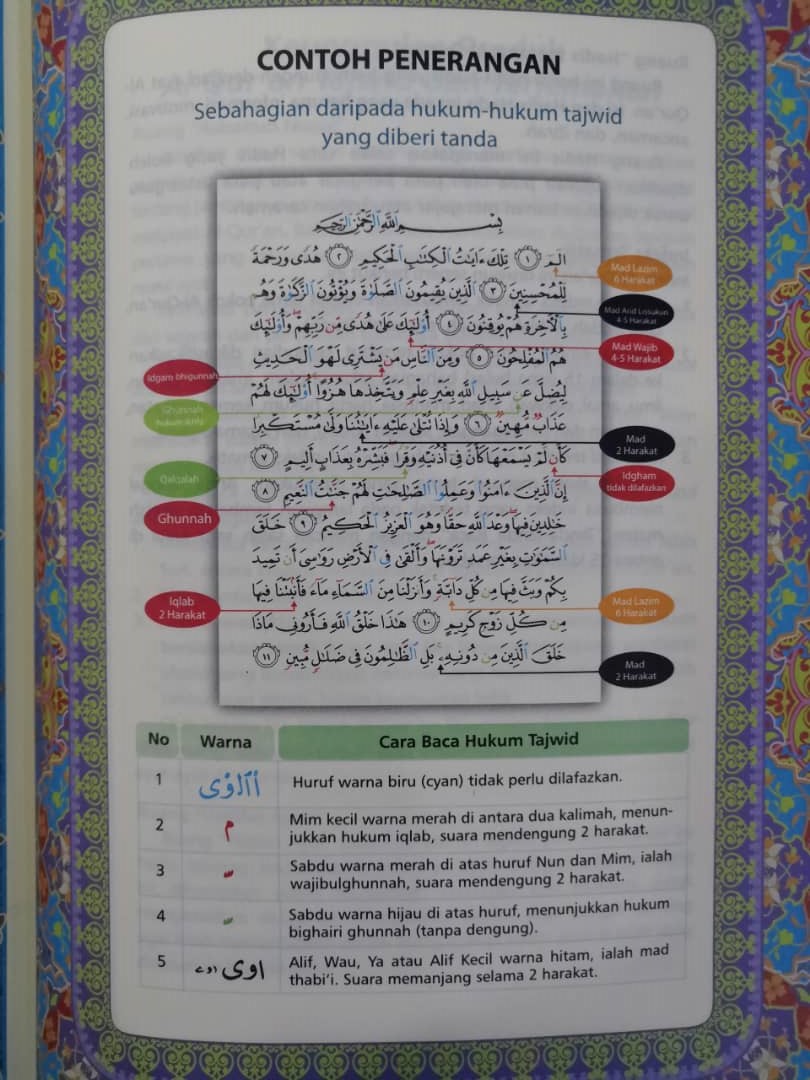 CONTOH PENERANGAN
Sebahagian daripada hukum-hukum tajwid
yang diberi tanda
بِسْمِ اللَّهِ الرَّحْمَٰنِ الرَّحِيمِ
الم ١ تِلْكَ ءَايَٰتُ الْكِتَٰبِ الْحَكِيمِ ٢ هُدًى وَرَحْمَةً
Mad Lazim
6 Harakat
لِّلْمُحْسِنِينَ ٣ الَّذِينَ يُقِيمُونَ الصَّلَوٰةَ وَيُؤْتُونَ الزَّكَوٰةَ وَهُم
Mad Arid Lissukun
4-5 Harakat
بِالْءَاخِرَةِ هُمْ يُوقِنُونَ ٤ أُولَٰٓئِكَ عَلَىٰ هُدًى مِّن رَّبِّهِمْ وَأُولَٰٓئِكَ
Mad Wajib
4-5 Harakat
هُمُ الْمُفْلِحُونَ ٥ وَمِنَ النَّاسِ مَن يَشْتَرِى لَهْوَ الْحَدِيثِ
Idgam bhigunnah
لِيُضِلَّ عَن سَبِيلِ اللَّهِ بِغَيْرِ عِلْمٍ وَيَتَّخِذَهَا هُزُوًا أُولَٰٓئِكَ لَهُمْ
Ghunnah
عَذَابٌ مُّهِينٌ ٦ وَإِذَا تُتْلَىٰ عَلَيْهِ ءَايَٰتُنَا وَلَّىٰ مُسْتَكْبِرًا
Mad
2 Harakat
كَأَن لَّمْ يَسْمَعْهَا كَأَنَّ فِىٓ أُذُنَيْهِ وَقْرًا فَبَشِّرْهُ بِعَذَابٍ أَلِيمٍ ٧
Qalqalah
Idgham
tidak dilafazkan
إِنَّ الَّذِينَ ءَامَنُوا وَعَمِلُوا الصَّٰلِحَٰتِ لَهُمْ جَنَّٰتُ النَّعِيمِ ٨
Ghunnah
خَٰلِدِينَ فِيهَا وَعْدَ اللَّهِ حَقًّا وَهُوَ الْعَزِيزُ الْحَكِيمُ ٩ خَلَقَ
السَّمَٰوَٰتِ بِغَيْرِ عَمَدٍ تَرَوْنَهَا وَأَلْقَىٰ فِى الْأَرْضِ رَوَٰسِىَ أَن تَمِيدَ
بِكُمْ وَبَثَّ فِيهَا مِن كُلِّ دَآبَّةٍ وَأَنزَلْنَا مِنَ السَّمَآءِ مَآءً فَأَنۢبَتْنَا فِيهَا
Iqlab
2 Harakat
Mad Lazim
6 Harakat
مِن كُلِّ زَوْجٍ كَرِيمٍ ١٠ هَٰذَا خَلْقُ اللَّهِ فَأَرُونِى مَاذَا
خَلَقَ الَّذِينَ مِن دُونِهِۦ بَلِ الظَّٰلِمُونَ فِى ضَلَٰلٍ مُّبِينٍ ١١
Mad
2 Harakat
No Warna Cara Baca Hukum Tajwid
1 Huruf warna biru (cyan) tidak perlu dilafazkan.
2 م Mim kecil warna merah di antara dua kalimah, menun-
jukkan hukum iqlab, suara mendengung 2 harakat.
3 ّ Sabdu warna merah di atas huruf Nun dan Mim, ialah
wajibulghunnah, suara mendengung 2 harakat.
4 ّ Sabdu warna hijau di atas huruf, menunjukkan hukum
bighairi ghunnah (tanpa dengung).
5 ا و ى Alif, Wau, Ya atau Alif Kecil warna hitam, ialah mad
thabi’i. Suara memanjang selama 2 harakat.